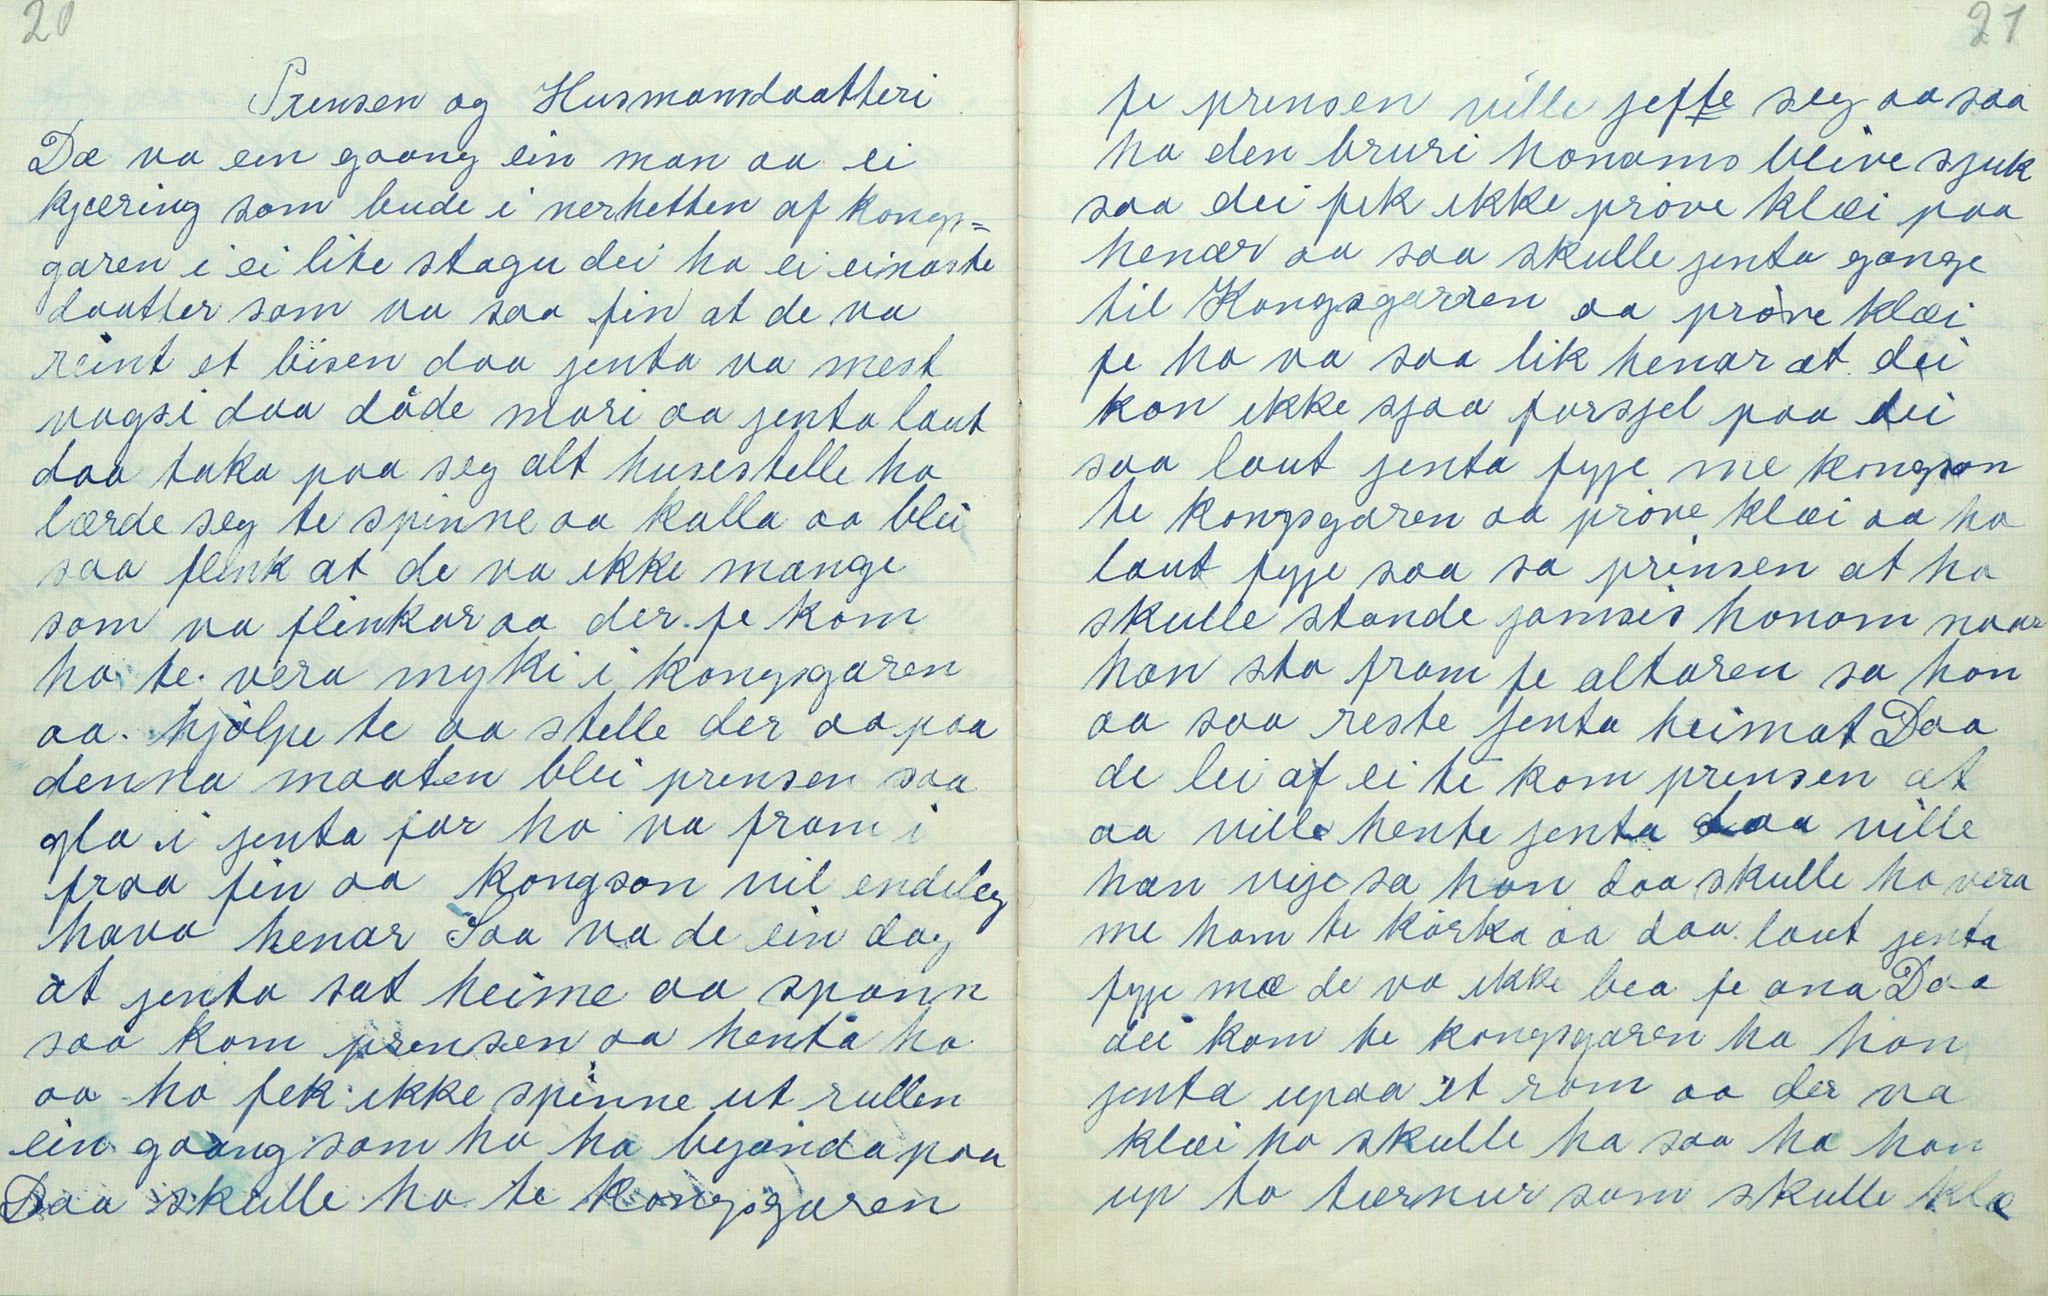 20
Prinsen og Husmansdaatteri
Dæ va ein gaang ein man aa ei
kjæring som bude i nerhetten af kongs=
garen i ei lite stagu dei ha ei einaste
daatter som va saa fin at de va
reint et bisen daa jenta va mest
vagsi daa döde mori aa jenta laut
daa taka paa seg alt husestelle ho
lærde seg te spinne aa kalla aa blei
saa flink at de va ikke mange
som va flinkar aa der.fe kom
ho te. vera myki i kongsgaren
aa. hjölpe te aa stelle der aa paa
denna maaten blei prensen saa
gla i jenta far ho va fram i
fraa fin aa kongson vil endeleg
hava henar Saa va de ein dag
at jenta sat heime aa spann
saa kom prensen aa henta ho
aa ho fek ikke spinne ut rullen
ein gaang som ho ha byönda paa
Daa skulle ho te kongsgaren
21
fe prensen ville jefte seg aa saa
ha den bruri honams bleive sjuk
saa dei fek ikke pröve klæi paa
henær aa saa skulle jenta gange
til Kongsgarren aa pröve klæi
fe ho va saa lik henar at dei
kan ikke sjaa forsjel paa dei
saa laut jenta fyje me kongson
te kongsgaren aa pröve klæi aa ho
laut fyje saa sa prinsen at ho
skulle stande jamsis honom naar
han sto fram fe altaren sa han
aa saa reste jenta heimat Daa
de lei af ei te kom prensen at
aa ville hente jenta daa ville
han vije sa han daa skulle ho vera
me ham te körka aa daa laut jenta
fyje mæ de va ikke bea fe ana Daa
dei kom te kongsgaren ha han
jenta upaa et rom aa der va
klæi ho skulle ha saa ha han
up to tærnur som skulle klæ